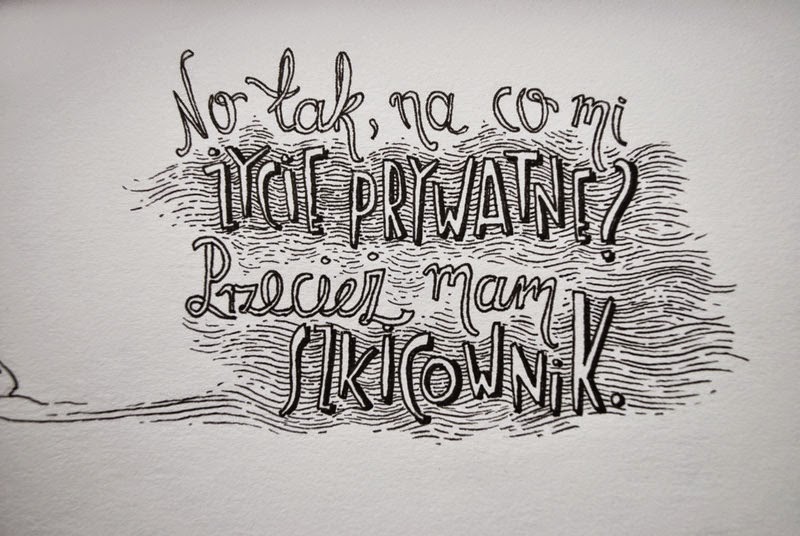 No tak, na co mi
ŻYCIE PRYWATNE?
Przecież mam
SZKICOWNIK.